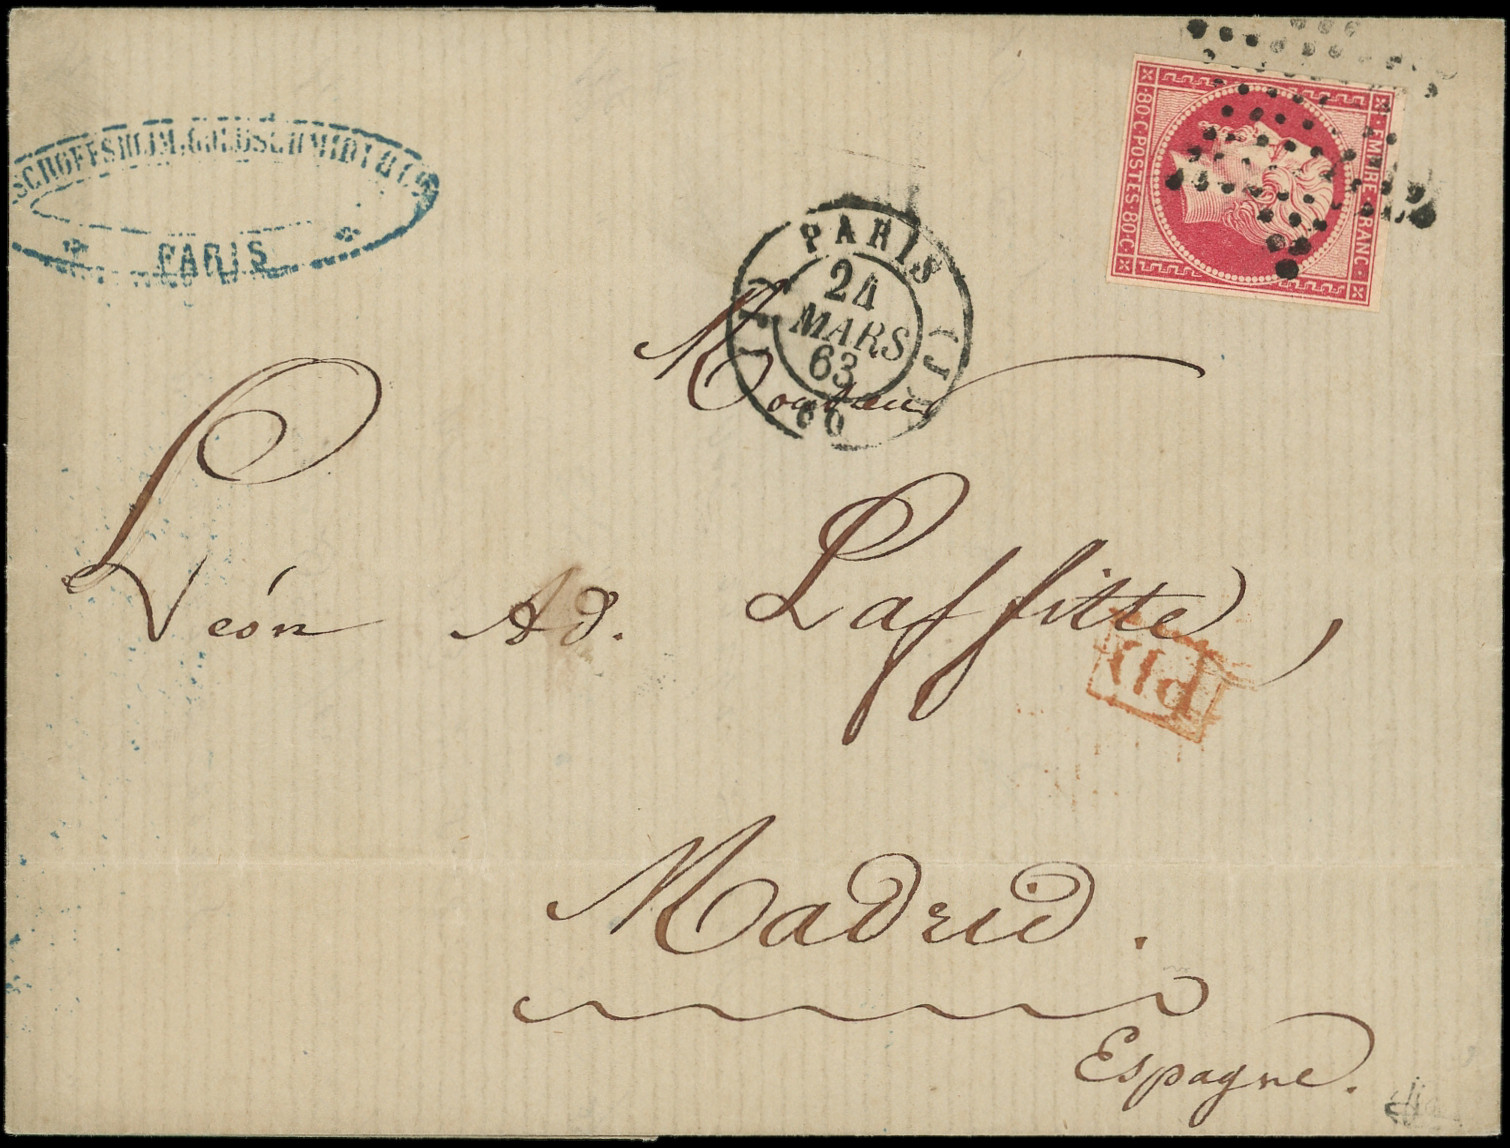 BISCHOFFSHEIM, GOLDSCHMIDT & Cie
PARIS
EMPIRE FRANC.
80 C POSTES 80 C
PARIS
24
MARS
63
60
Monsieur
Léon Ad. Laffitte,
P.D.
Madrid.
Espagne.